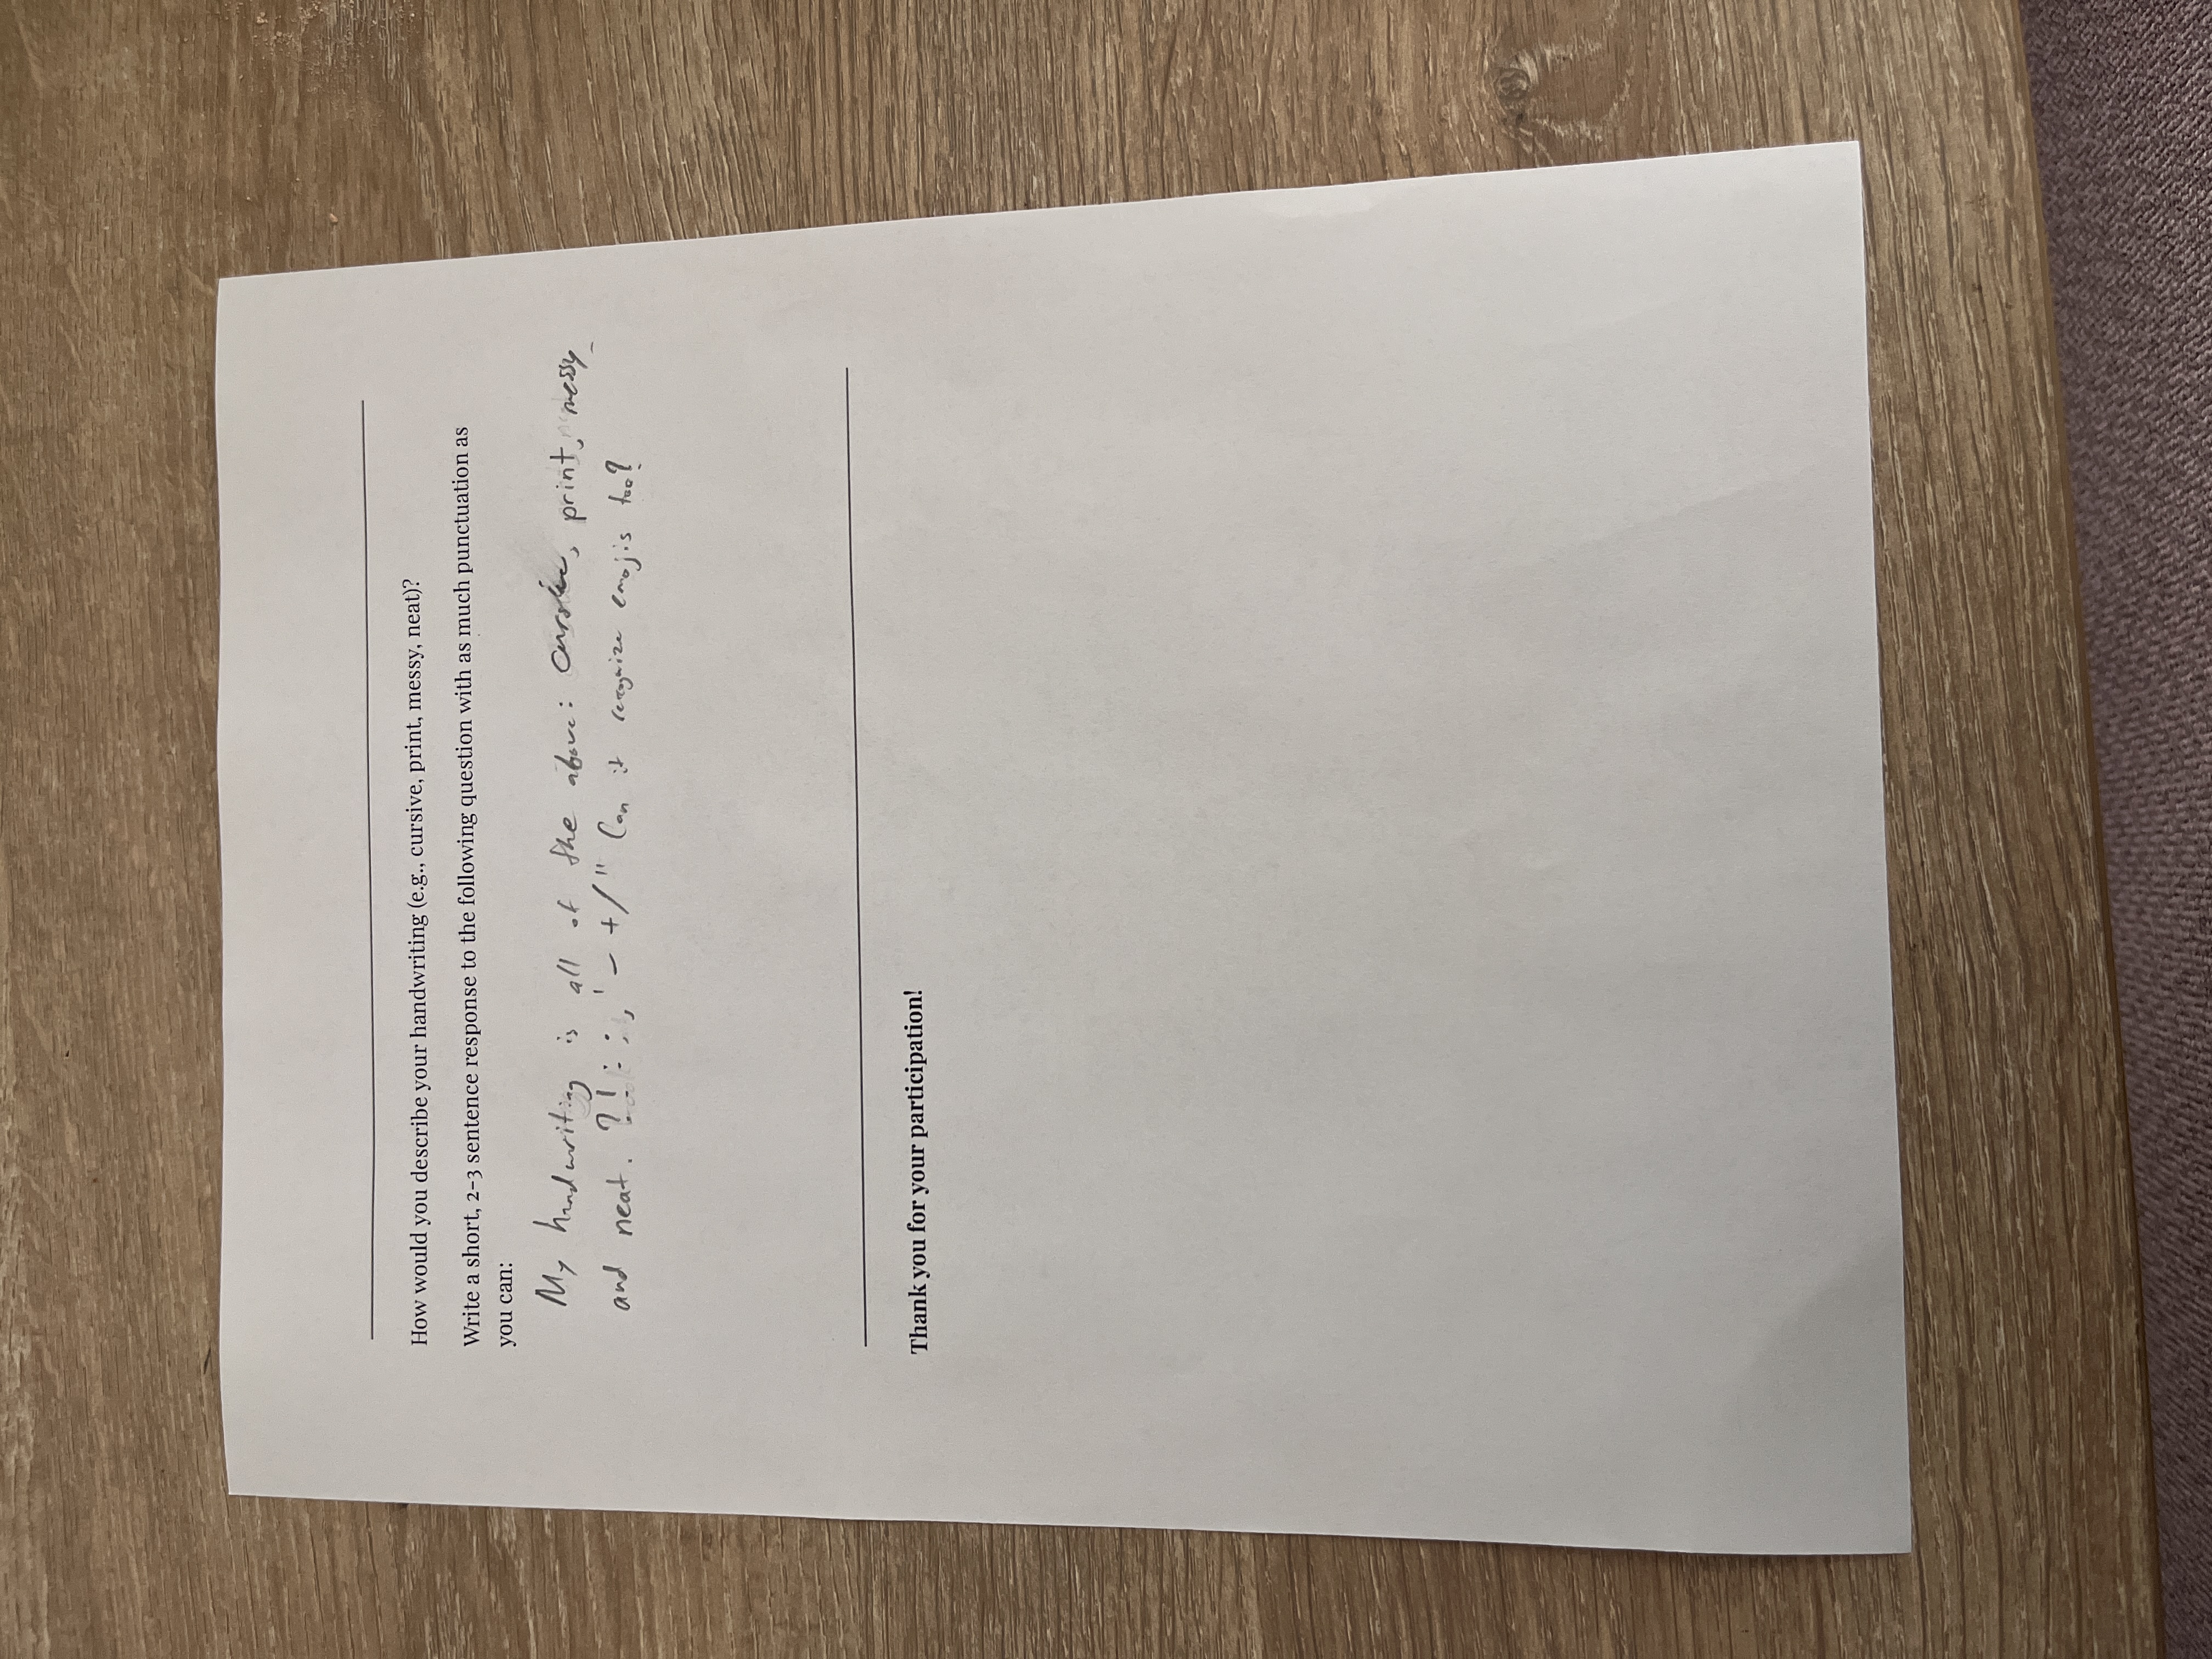 How would you describe your handwriting (e.g., cursive, print, messy, neat)?
Write a short, 2-3 sentence response to the following question with as much punctuation as
you can:
My handwriting is all of the above: cursive, print, messy
and neat. ?! : ; , ' - + / " Can it recognize emojis too?
Thank you for your participation!